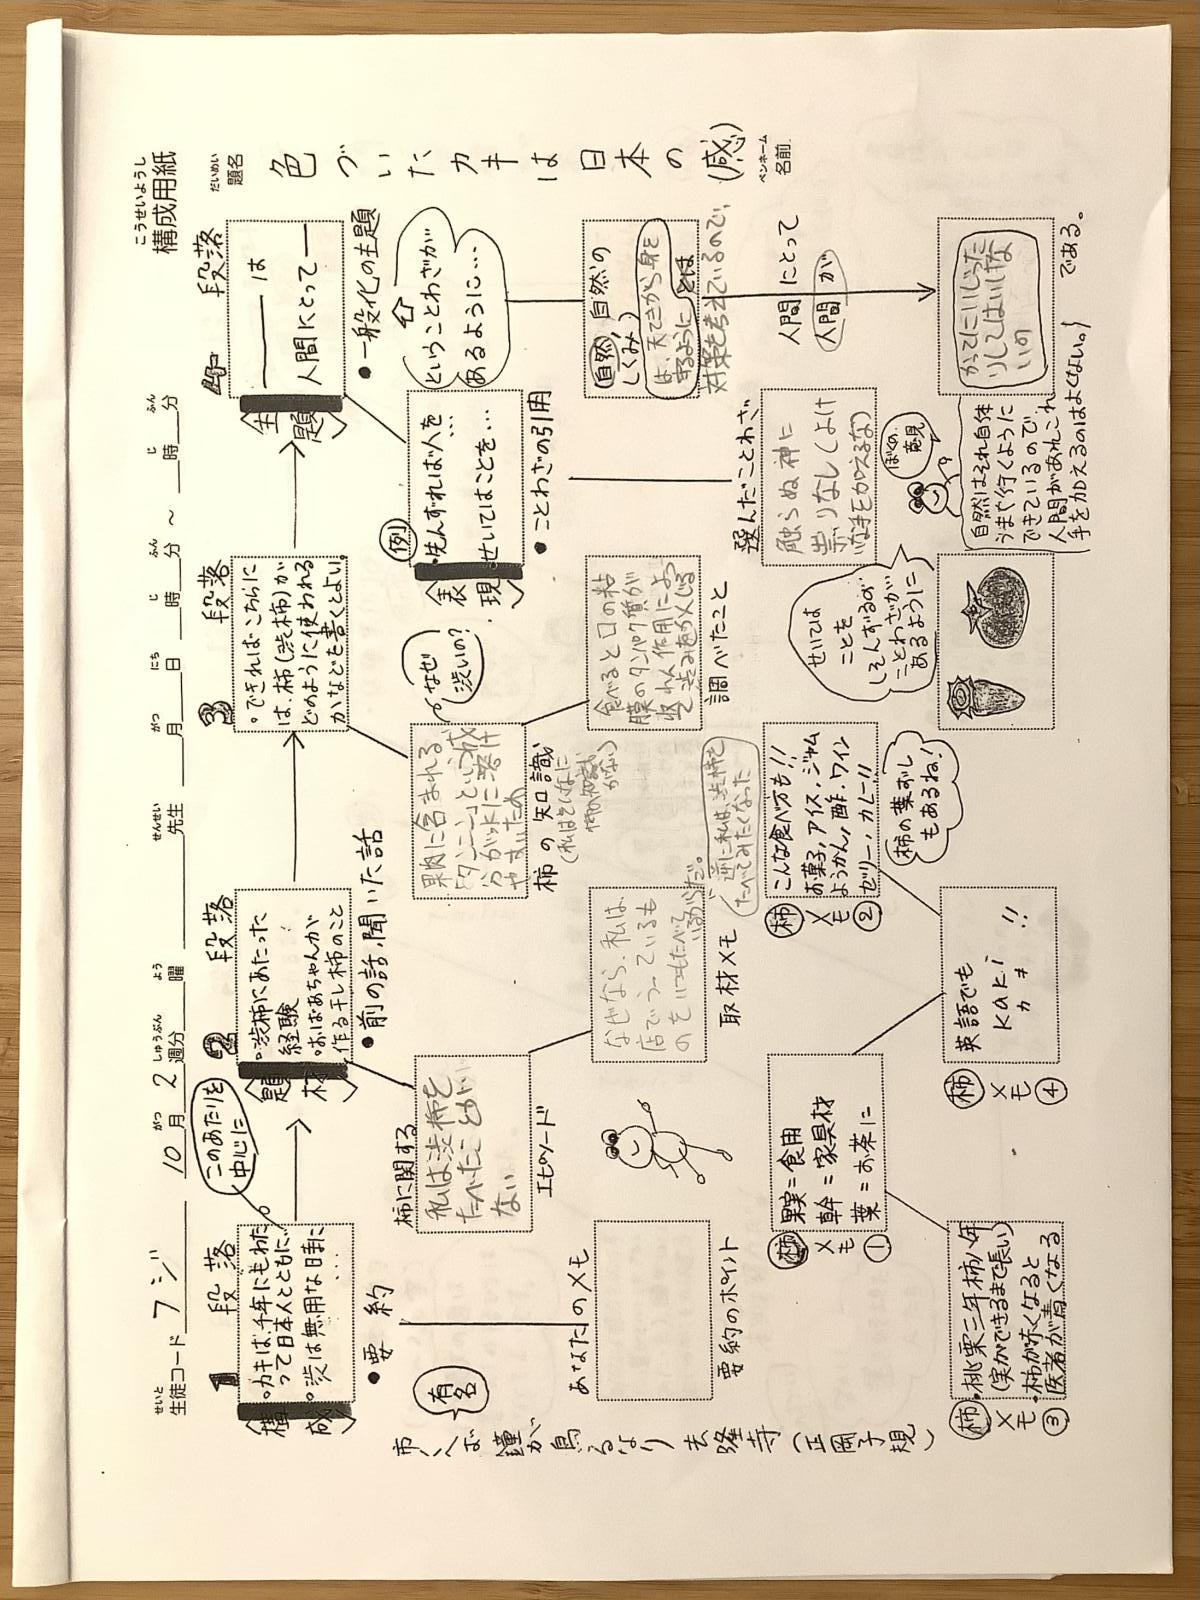 構成用紙
こうせいようし
生徒コード フジ 10月 2週分 曜 先生 月 日 時 分 ～ 時 分
せいと がつ しゅうぶん よう せんせい がつ にち じ ふん じ ふん
題名
だいめい
色づいたカキは日本の(感)
ペンネーム
名前
1 段落
構成
・カキは、千年にもわた
って日本人とともに…
・渋は無用な日まに
・・・
このあたりを
中心に
●要約
あなたのメモ
要約のポイント
有名
鐘が鳴るなり 法隆寺(正岡子規)
2 段落
題材
・渋柿にあたった
経験
・おばあちゃんが
作る干し柿のこと
●前の話、聞いた話
柿に関する
エピソード
私は渋柿を
たべたことが
ない
なぜなら、私は、
店でうっているも
のをいつもたべて
いるからだ。
逆に私は、渋柿を
たべてみたくなった
取材メモ
3 段落
・できればこちらに
は、柿(渋柿)が
どのように使われる
かなどを書くとよい
なぜ
渋いの?
果肉に含まれる
「タンニン」という成
分がだ
やすいため
柿の知識
(私はそんなに
柿の知識
がない)
食べると口の粘
膜のタンパク質が
収れん作用によっ
渋みをかんじる
調べたこと
4 段落
主題
――は
人間にとって――
●一般化の主題
ということわざが
あるように…
表現
例
・先んずれば人を…
・せいてはことを…
●ことわざの引用
選んだことわざ
触らぬ神に
祟りなし(よけ
いな手をくわえるな)
自然の
しくみ
自然
は、天てきから身を
守るように
対策を考えているので、
人間にとって
人間が
かってにいじった
りしてはいけな
いの
である。
ぼくの
意見
自然はそれ自体
うまや行くように
できているので
人間があれこれ
手を加えるのはよくない。
せいては
ことを
しそんずるの
ことわざが
あるように
柿メモ①
果実=食用
幹=家具材
葉=お茶に
柿メモ②
こんな食べ方も!!
お菓子,アイス,ジャム
ようかん,酢,ワイン
ゼリー,カレー!!
柿の葉ずし
もあるね!
柿メモ③
・桃栗三年柿八年
(実ができるまで長い)
・柿が赤くなると
医者が青くなる
柿メモ④
英語でも
kaki
カキ !!